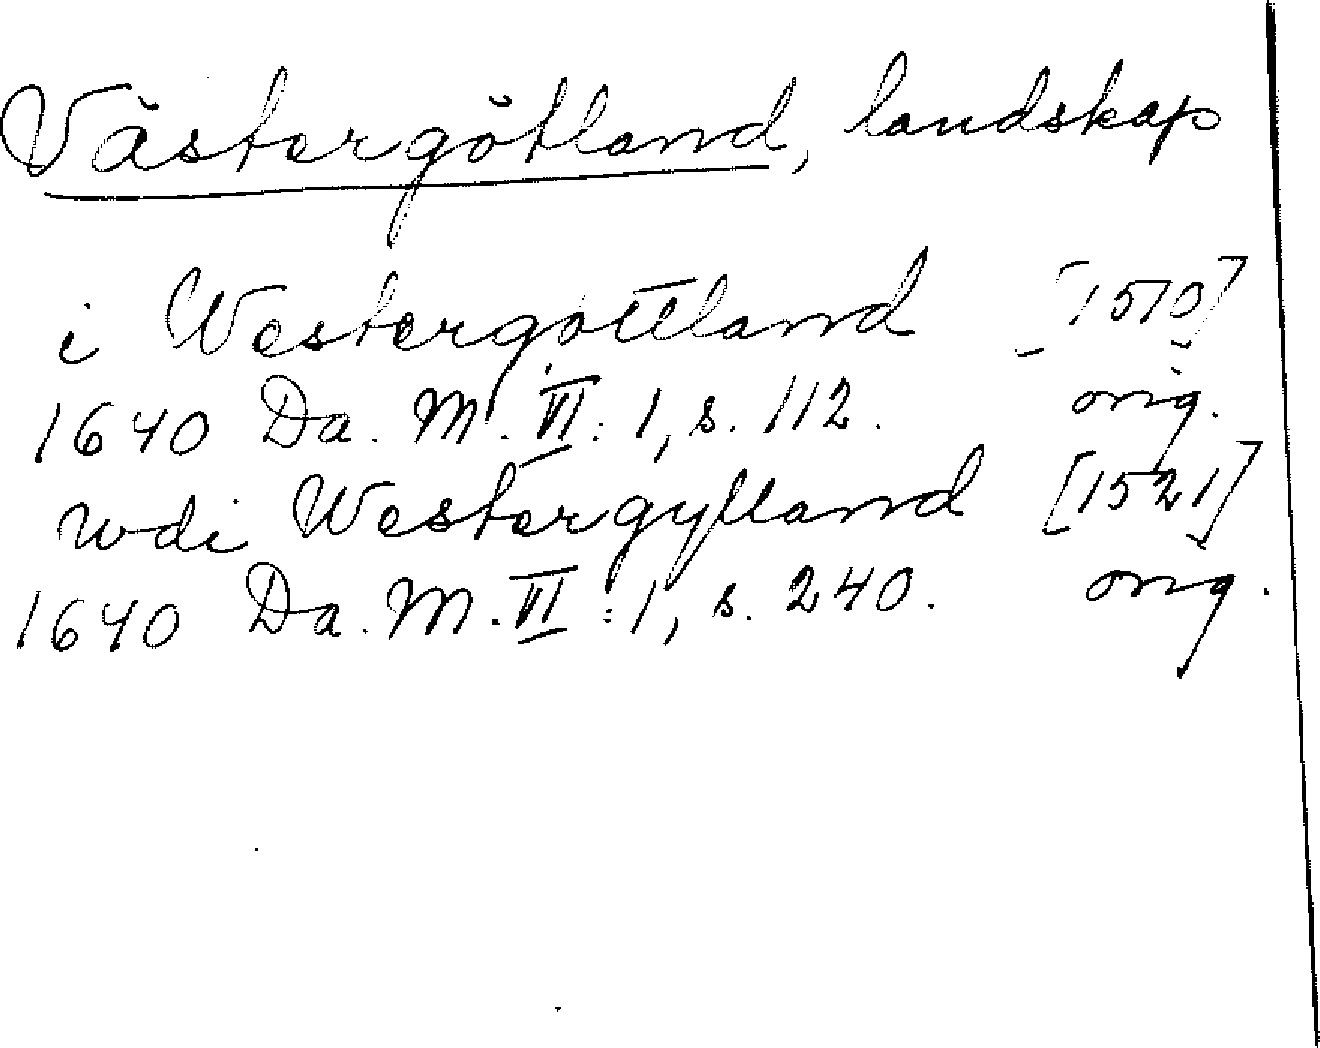 Västergötland, landskap
i Westergöttland [1510]
1640 Da. M. VI: 1, s. 112. orig.
wdi Westergylland [1521]
1640 Da. M. VI: 1, s. 240. orig.